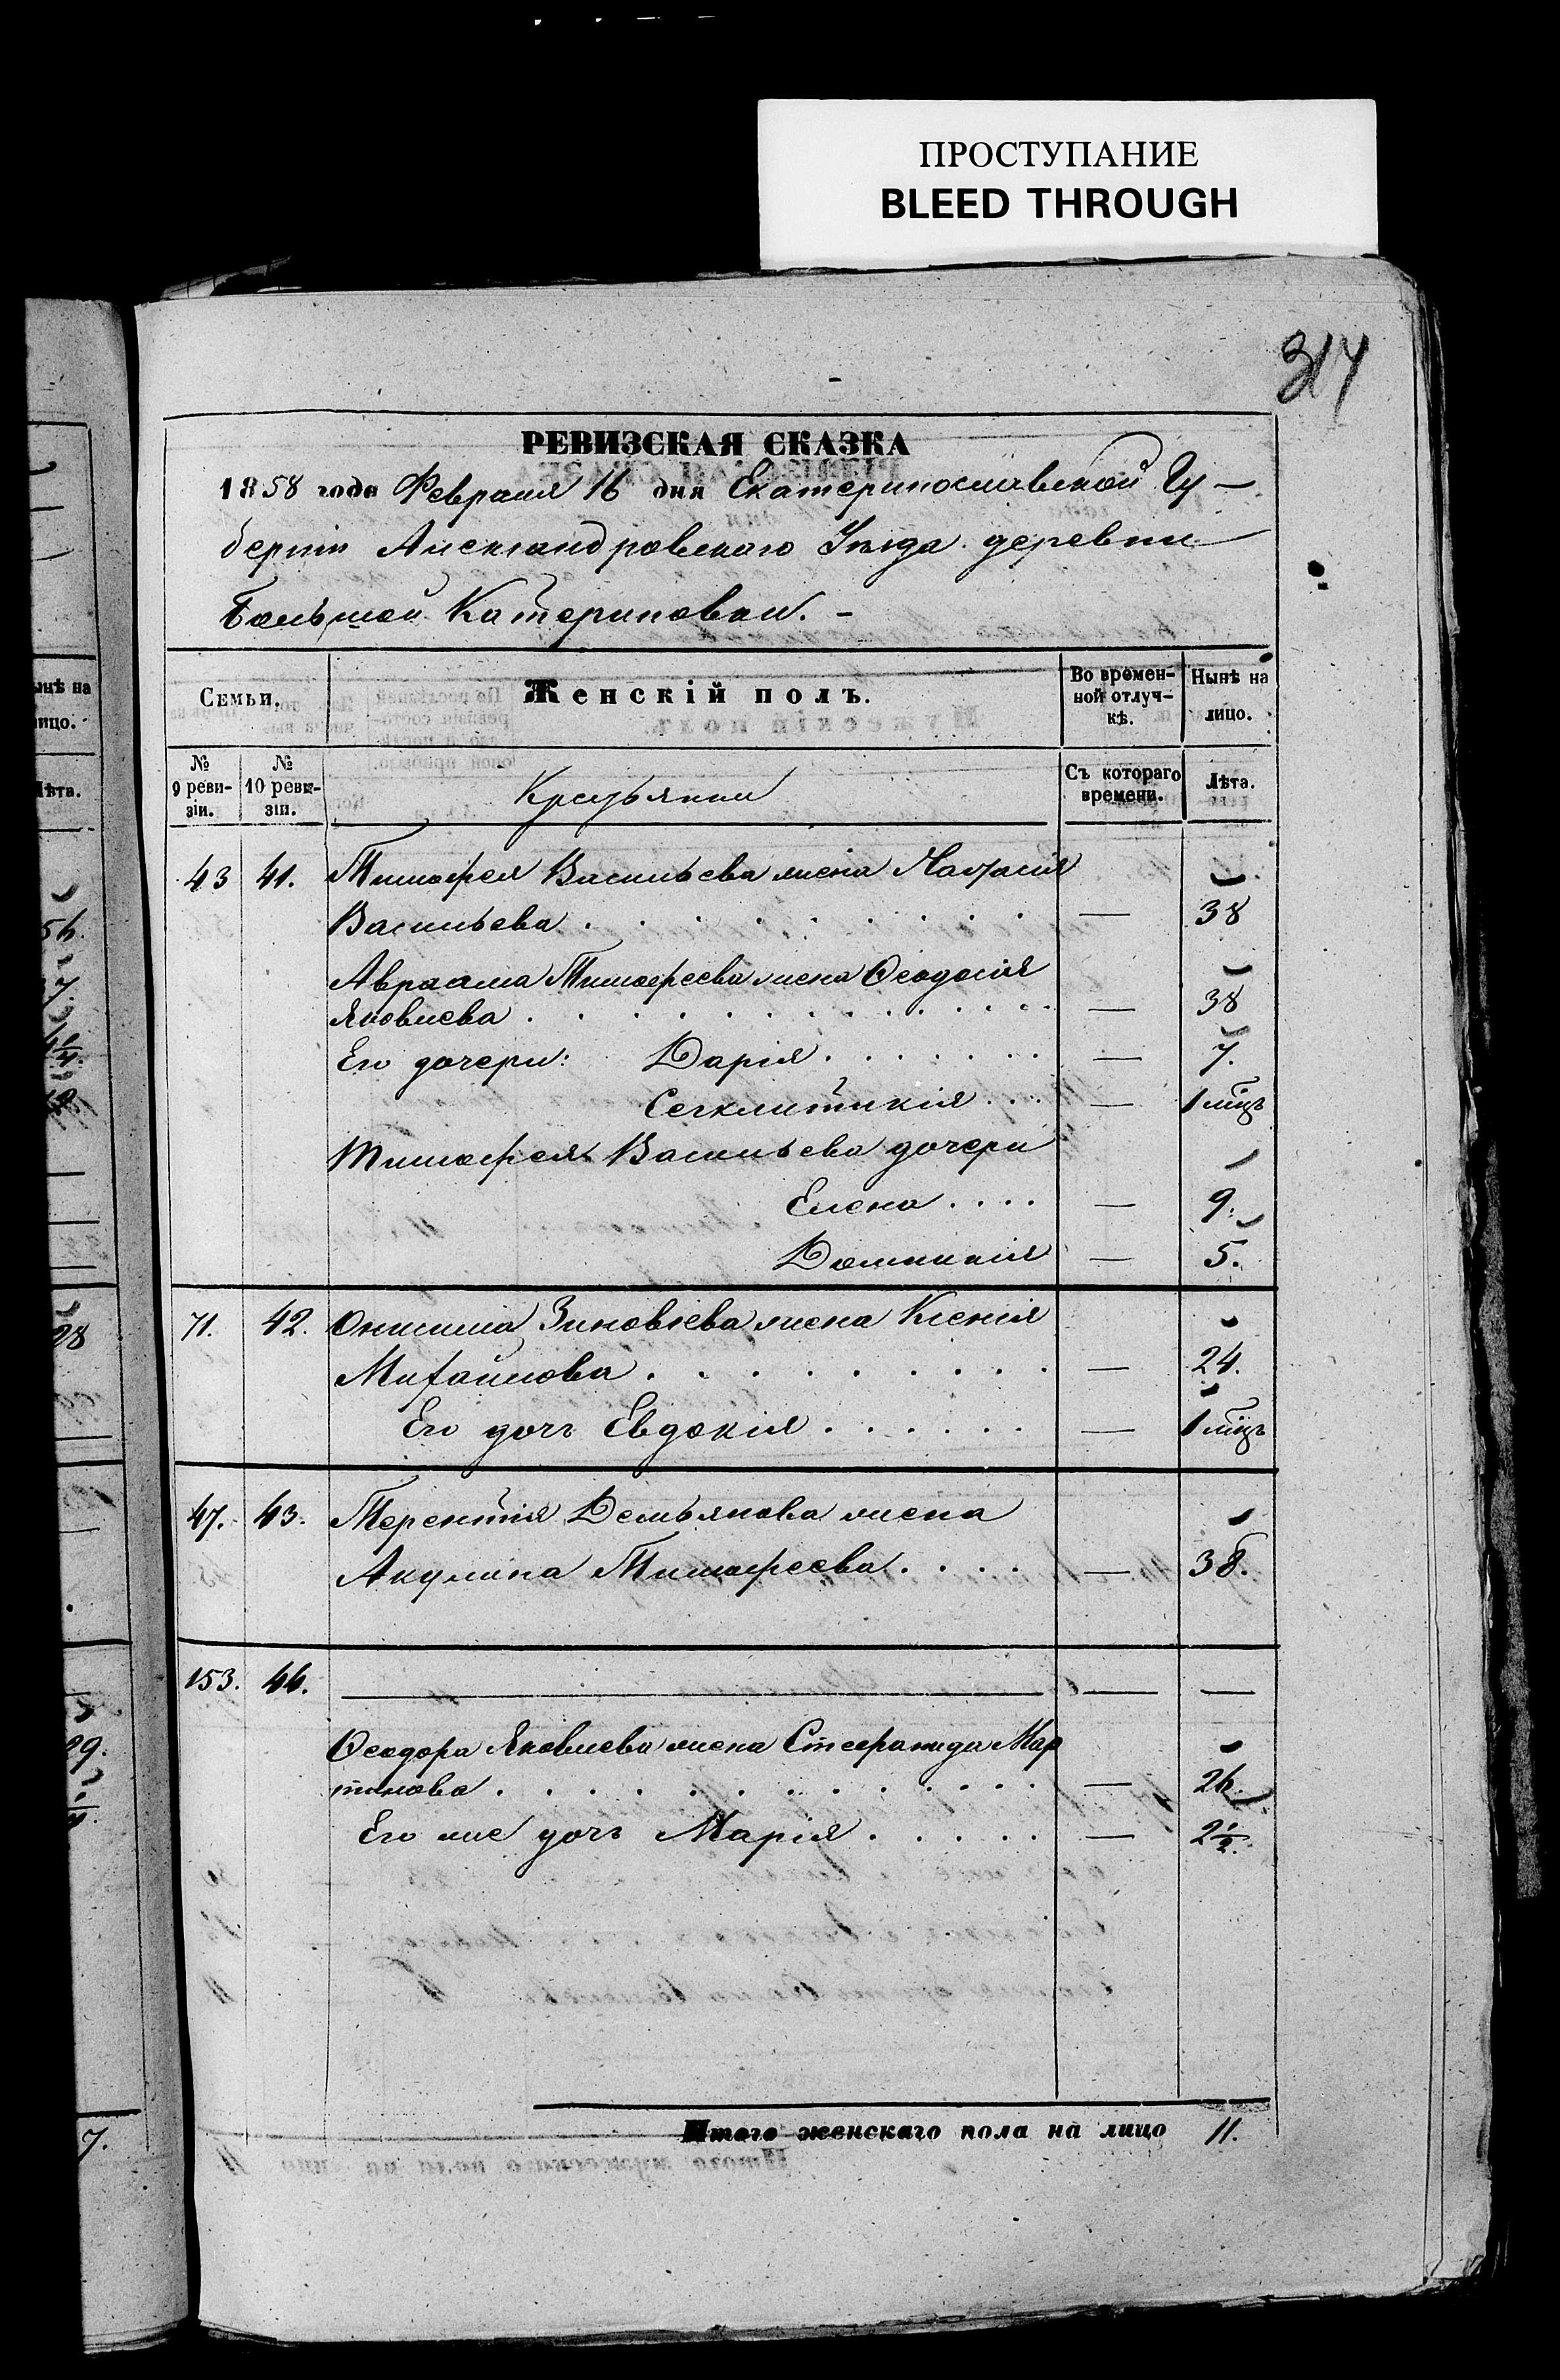 ПРОСТУПАНИЕ
BLEED THROUGH
314
РЕВИЗСКАЯ СКАЗКА
1858 года Февраля 16 дня Екатеринославской Гу-
берніи Александровскаго Уѣзда деревни
Большой Катериновки. -
Семьи. Женскій полъ. Во времен-ной отлуч-кѣ. Нынѣ на лицо.
№ 9 реви-зіи. № 10 реви-зіи. Крестьянки Съ котораго времени. Лѣта.
43 41. Тимофея Васильева жена Настасія
Васильева . . . . . . . . — 38
Авраама Тимофеева жена Ѳеодосія
Яковлева . . . . . . . . — 38
Его дочери: Дарія . . . . . . — 7.
Сегклитикія . . . — 1 мѣцъ
Тимофея Васильева дочери
Елена . . . . — 9.
Домникія — 5.
71. 42. Онисима Зиновіева жена Ксенія
Михайлова . . . . . . . . — 24.
Его дочь Евдокія . . . . . . — 1 мѣцъ
47. 43. Терентія Демьянова жена
Акулина Тимофеева . . . . — 38.
153. 44. — — —
Ѳеодора Яковлева жена Стефанида Мар
тинова . . . . . . . . . . — 26.
Его же дочь Марія . . . . . — 2½.
Итого женскаго пола на лицо 11.